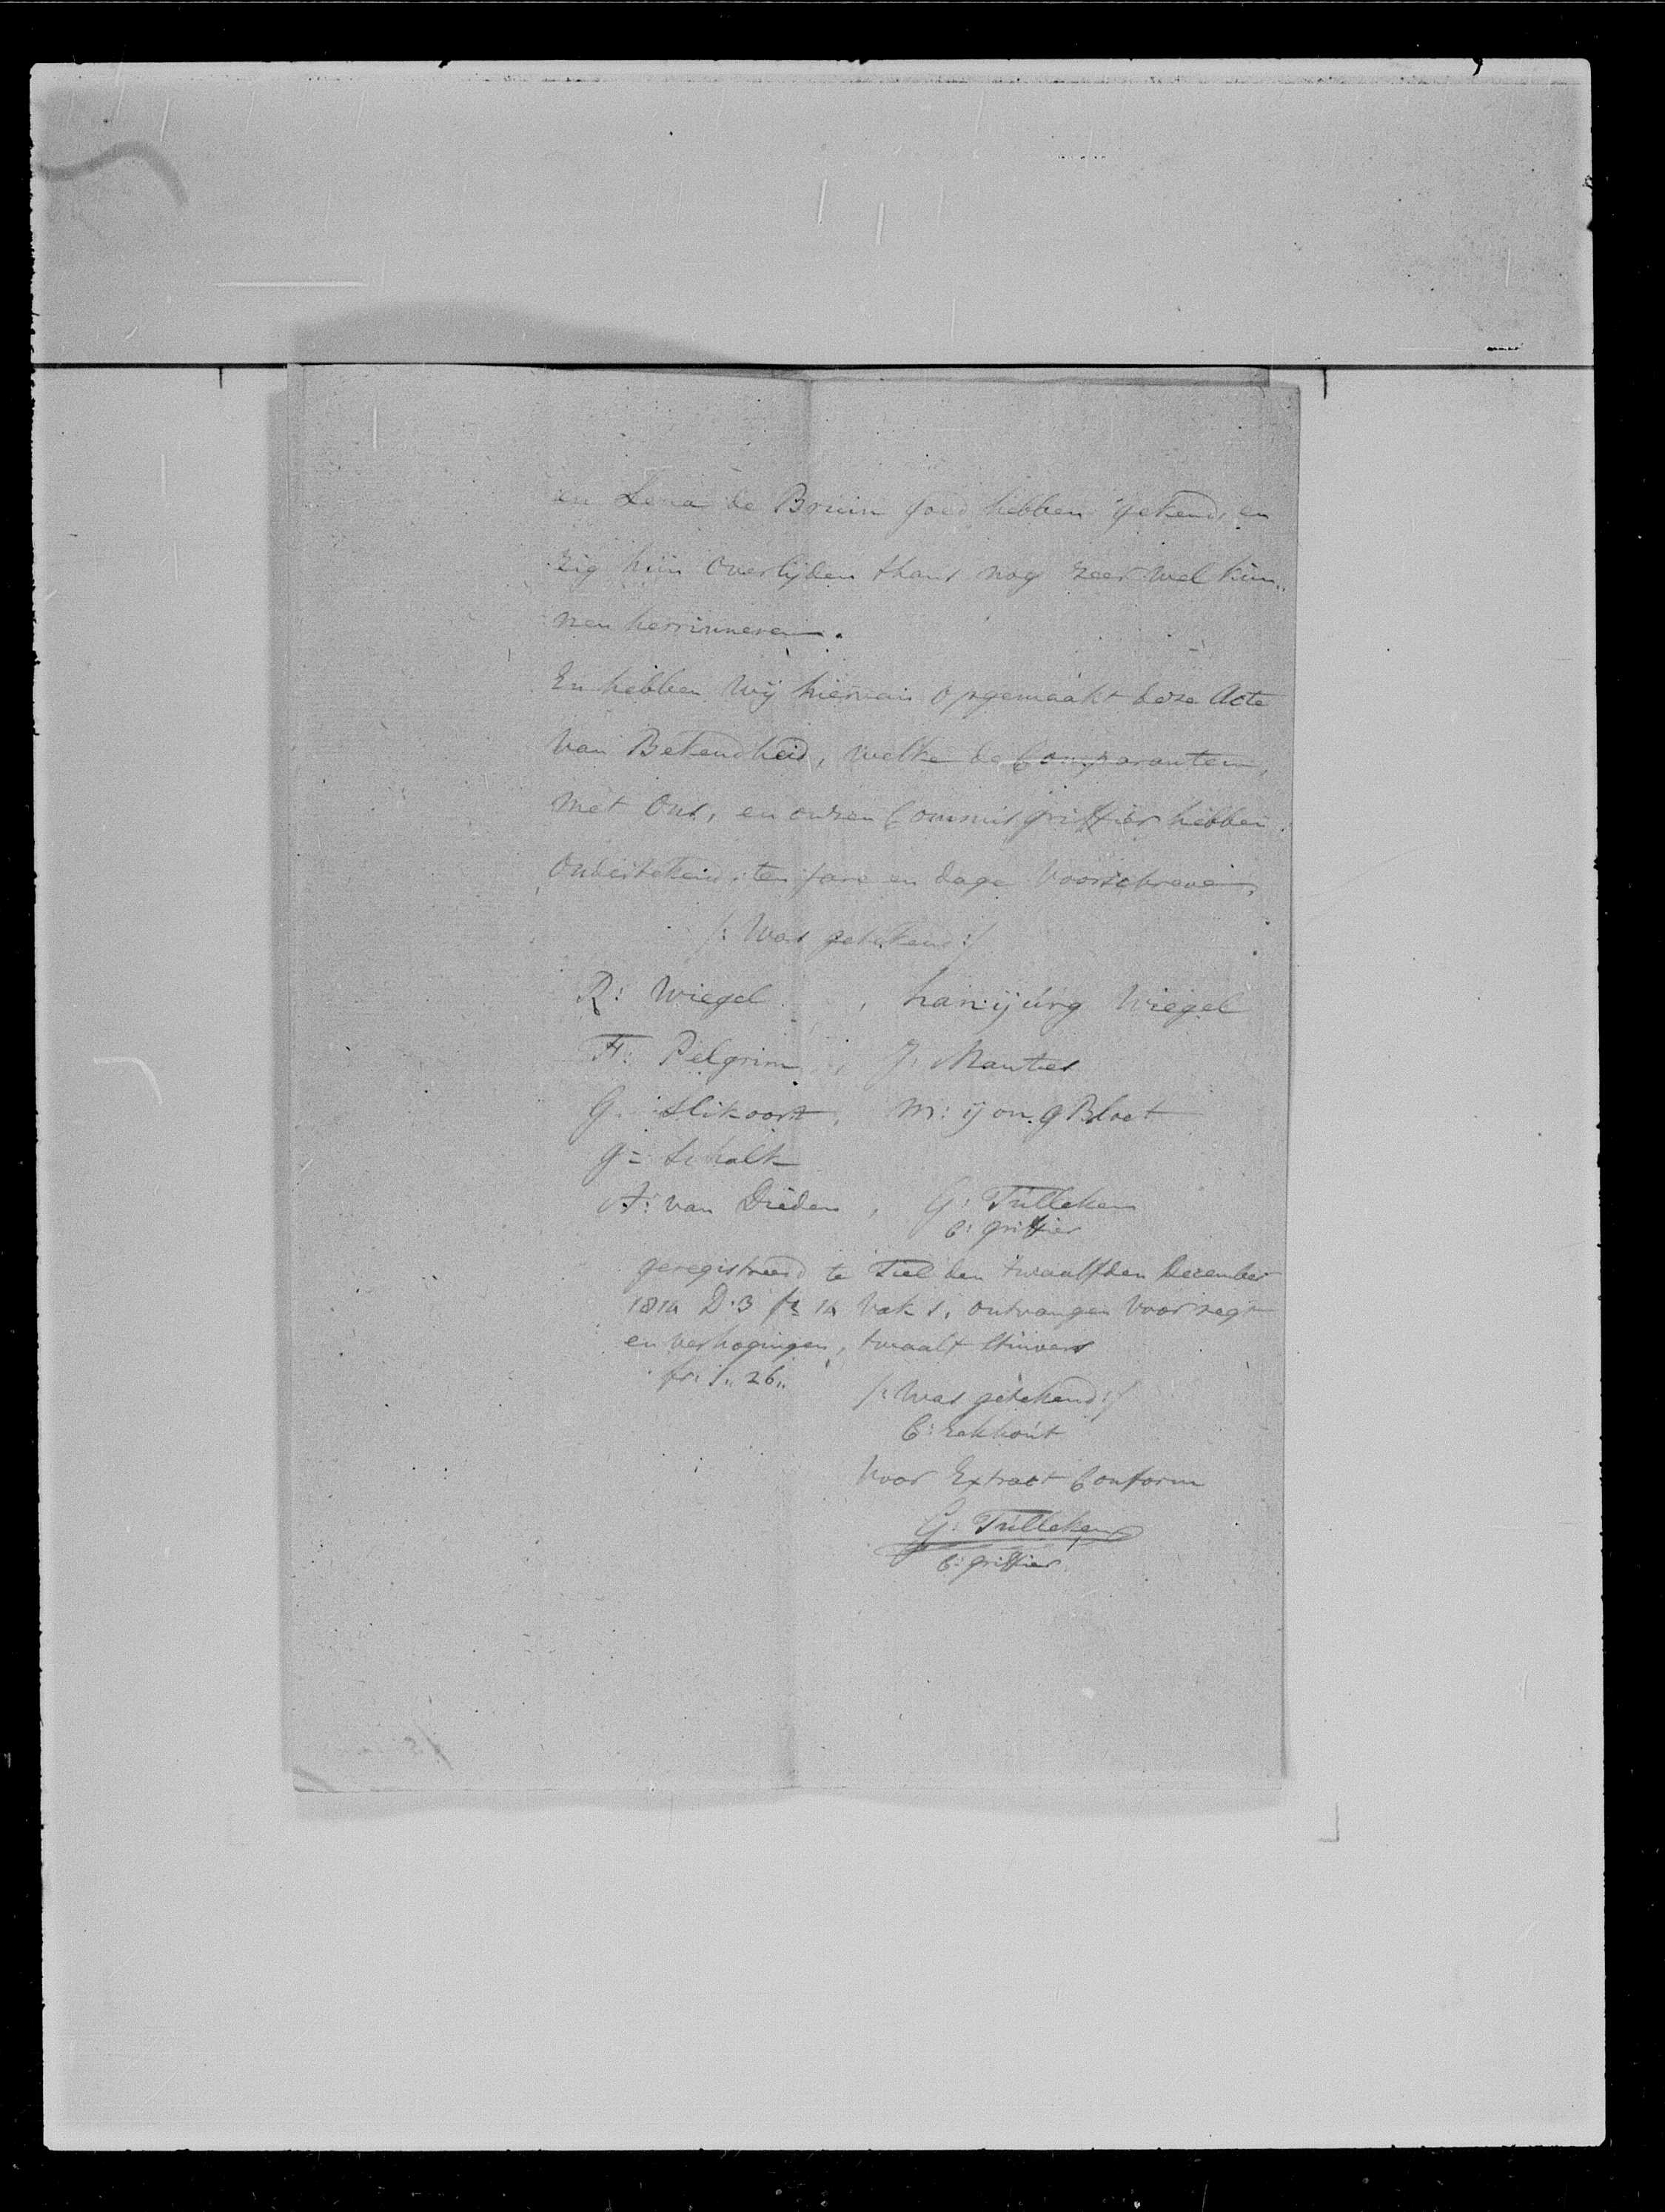 en Lena de Bruin goed hebben gekend, en
zig hun overlijden thans nog zeer wel kun„
nen herrinneren.
En hebben Wij hiervan opgemaakt deze Acte
van Bekendheid, welke de Comparanten,
met Ons, en onzen Commis griffier hebben
Ondertekend, ten jare en dage voorschreven,
/: Was getekend :/
R: Wiegel, han: ijúrg Wiegel
H: Pelgrim, J: Manties
G. Slikoort, M: ijong Bloet
G= Schalk
A: van Drieden, G: Tulleken
C: griffier
geregistreerd te Tiel den twaalfden December
1814 D: 3 fo 14 Vak 1, ontvangen voor regt
en verhogingen, twaalf Stuivers
fr: 1„ 26„
/: Was getekend :/
C: Eekhout
Voor Extract Conform
G: Tulleken
C: griffier